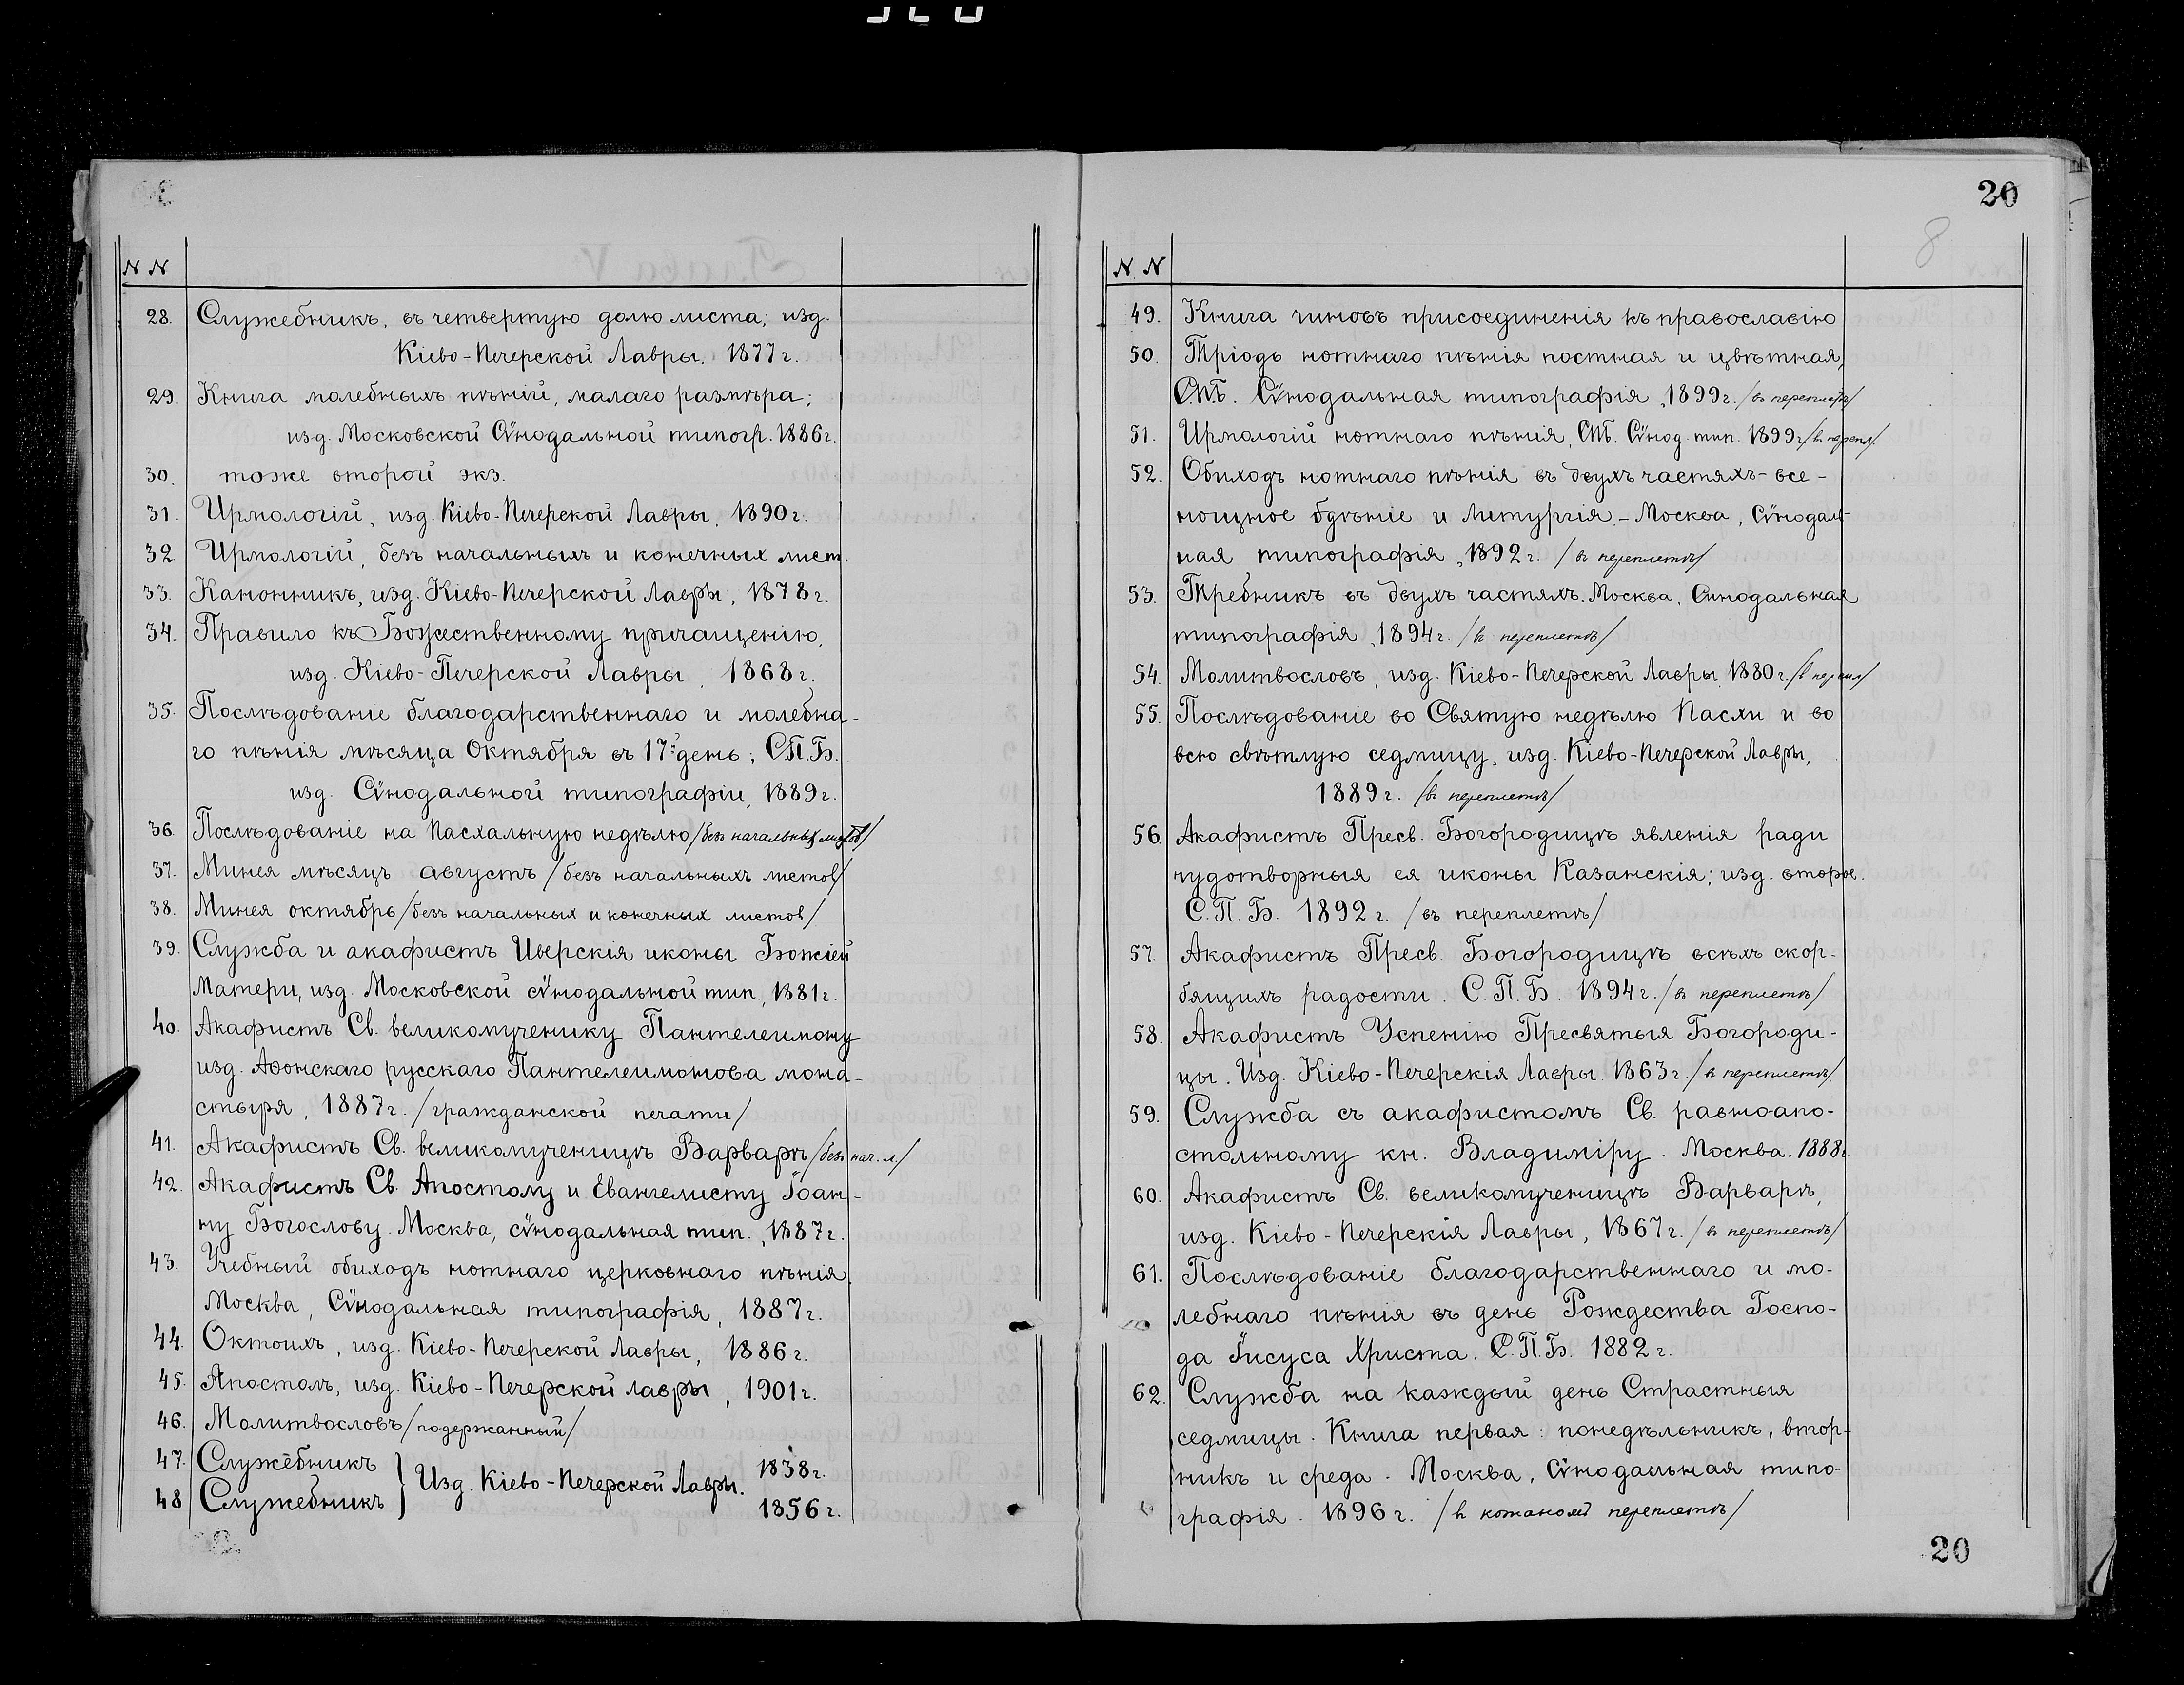 20
8
N N
28. Служебникъ, въ четвертую долю листа; изд.
Кіево-Печерской Лавры. 1877 г.
29. Книга молебныхъ пѣній, малаго размѣра;
изд. Московской Сѵнодальной типогр. 1886 г.
30. тоже второй экз.
31. Ирмологій, изд. Кіево-Печерской Лавры, 1890 г.
32 Ирмологій, безъ начальныхъ и конечных лист.
33. Канонникъ, изд. Кіево-Печерской Лавры, 1878 г.
34. Правило къ Божественному причащенію,
изд. Кіево-Печерской Лавры, 1868 г.
35. Послѣдованіе благодарственнаго и молебна-
го пѣнія мѣсяца Октября въ 17й день; С.П.Б.
изд. Сѵнодальной типографіи, 1889 г.
36. Послѣдованіе на Пасхальную недѣлю /без начальных листов/
37. Минея мѣсяцъ августъ /безъ начальныхъ листов/
38. Минея октябрь /безъ начальных и конечных листов/
39. Служба и акафистъ Иверскія иконы Божіей
Матери, изд. Московской сѵнодальной тип., 1881 г.
40. Акафистъ Св. великомученику Пантелеимону
изд. Аѳонскаго русскаго Пантелеимонова мона-
стыря, 1887 г. /гражданской печати/
41. Акафистъ Св. великомученицѣ Варварѣ /безъ нач. л/
42. Акафистъ Св. Апостолу и Евангелисту Іоан-
ну Богослову. Москва, сѵнодальная тип., 1887 г.
43. Учебный обиходъ нотнаго церковнаго пѣнія.
Москва, Сѵнодальная типографія, 1887 г.
44. Октоихъ, изд. Кіево-Печерской Лавры, 1886 г.
45. Апостолъ, изд. Кіево-Печерской Лавры, 1901 г.
46. Молитвословъ /подержанный/
47. Служебникъ } Изд. Кіево-Печерской Лавры. 1838 г.
48 Служебникъ 1856 г.
N. N
49. Книга чиновъ присоединенія къ православію
50. Тріодь нотнаго пѣнія постная и цвѣтная,
СПБ. Сѵнодальная типографія, 1899 г. /въ переплетѣ/
51. Ирмологій нотнаго пѣнія, СПБ. Сѵнод. тип. 1899 г /въ перепл/
52. Обиходъ нотнаго пѣнія въ двухъ частяхъ - все-
нощное бдѣніе и Литургія. - Москва, Сѵнодаль-
ная типографія, 1892 г. /въ переплетѣ/
53. Требникъ въ двухъ частяхъ. Москва, Синодальная
типографія, 1894 г. /в переплетѣ/
54. Молитвословъ, изд. Кіево-Печерской Лавры, 1880 г. /в перепл/
55. Послѣдованіе во Святую недѣлю Пасхи и во
всю свѣтлую седмицу, изд. Кіево-Печерской Лавры,
1889 г. /въ переплетѣ/
56. Акафистъ Пресв. Богородицѣ явленія ради
чудотворныя ея иконы Казанскія; изд. второе.
С.П.Б. 1892 г. /въ переплетѣ/
57. Акафистъ Пресв. Богородицѣ всѣхъ скор-
бящихъ радости. С.П.Б. 1894 г. /въ переплетѣ/
58. Акафистъ Успенію Пресвятыя Богороди-
цы. Изд. Кіево-Печерскія Лавры. 1863 г. /в переплетѣ/
59. Служба съ акафистомъ Св. равноапо-
стольному кн. Владиміру. Москва. 1888 г.
60. Акафистъ Св. великомученицѣ Варварѣ,
изд. Кіево-Печерскія Лавры, 1867 г. /в переплетѣ/
61. Послѣдованіе благодарственнаго и мо-
лебнаго пѣнія въ день Рождества Госпо-
да Іисуса Христа. С.П.Б. 1882 г.
62. Служба на каждый день Страстныя
седмицы. Книга первая: понедѣльникъ, втор-
никъ и среда. Москва, Сѵнодальная типо-
графія. 1896 г. /в кожаной переплетѣ/
20